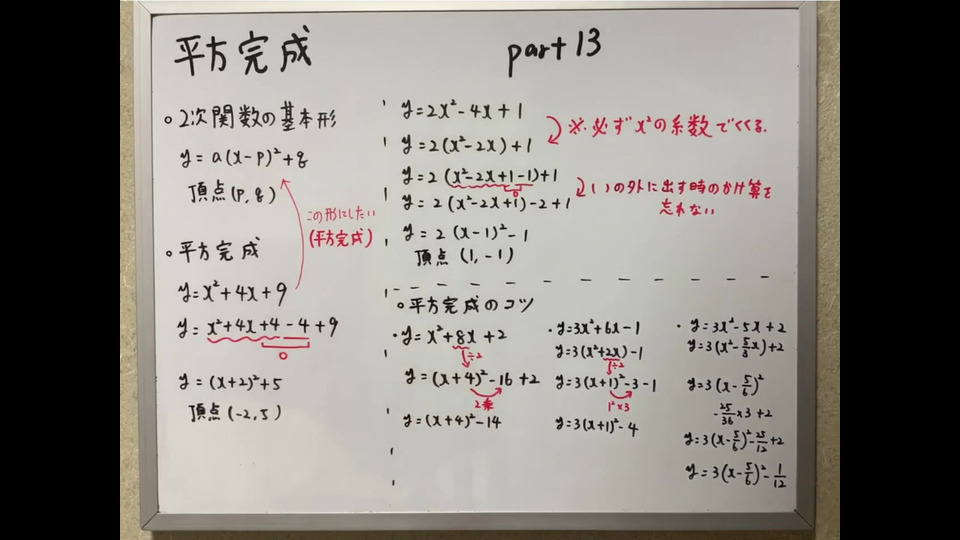 平方完成
part 13
○2次関数の基本形
y=a(x-p)²+q
頂点(p,q)
この形にしたい
(平方完成)
○平方完成
y=x²+4x+9
y=x²+4x+4-4+9
0
y=(x+2)²+5
頂点(-2,5)
y=2x²-4x+1
※必ずx²の係数でくくる.
y=2(x²-2x)+1
y=2(x²-2x+1-1)+1
0
( )の外に出す時のかけ算を
忘れない
y=2(x²-2x+1)-2+1
y=2(x-1)²-1
頂点(1,-1)
○平方完成のコツ
・y=x²+8x+2
÷2
y=(x+4)²-16+2
2乗
y=(x+4)²-14
・y=3x²+6x-1
y=3(x²+2x)-1
÷2
y=3(x+1)²-3-1
1²×3
y=3(x+1)²-4
・y=3x²-5x+2
y=3(x²-5/3x)+2
y=3(x-5/6)²
-25/36×3+2
y=3(x-5/6)²-25/12+2
y=3(x-5/6)²-1/12